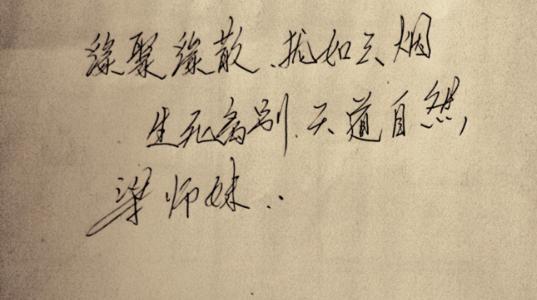 缘聚缘散、犹如云烟
生死离别、天道自然,
梁师妹..